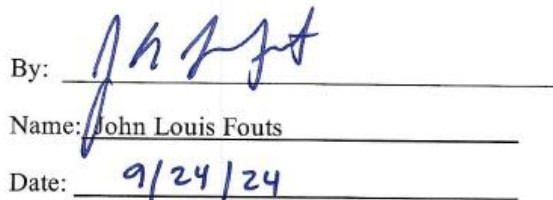 By:
Name: John Louis Fouts
Date: 9/24/24